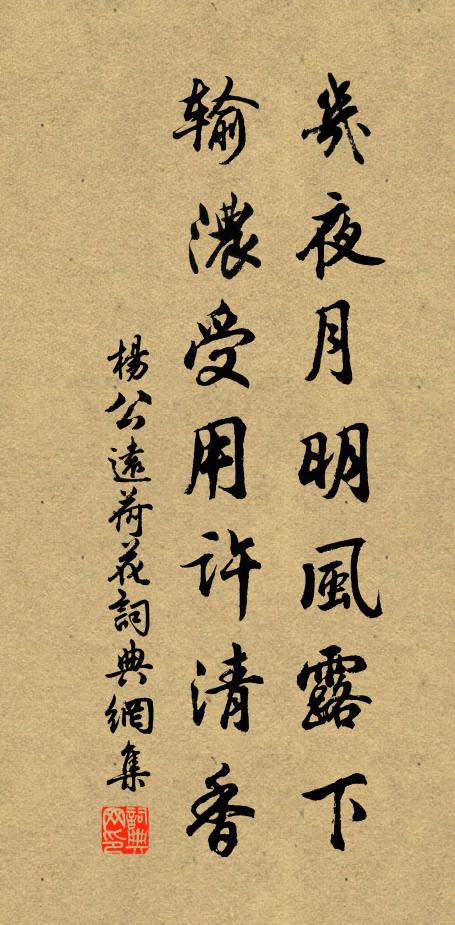 幾夜月明風露下
輸濃受用許清香
楊公遠荷花詞典網集
詞典網印